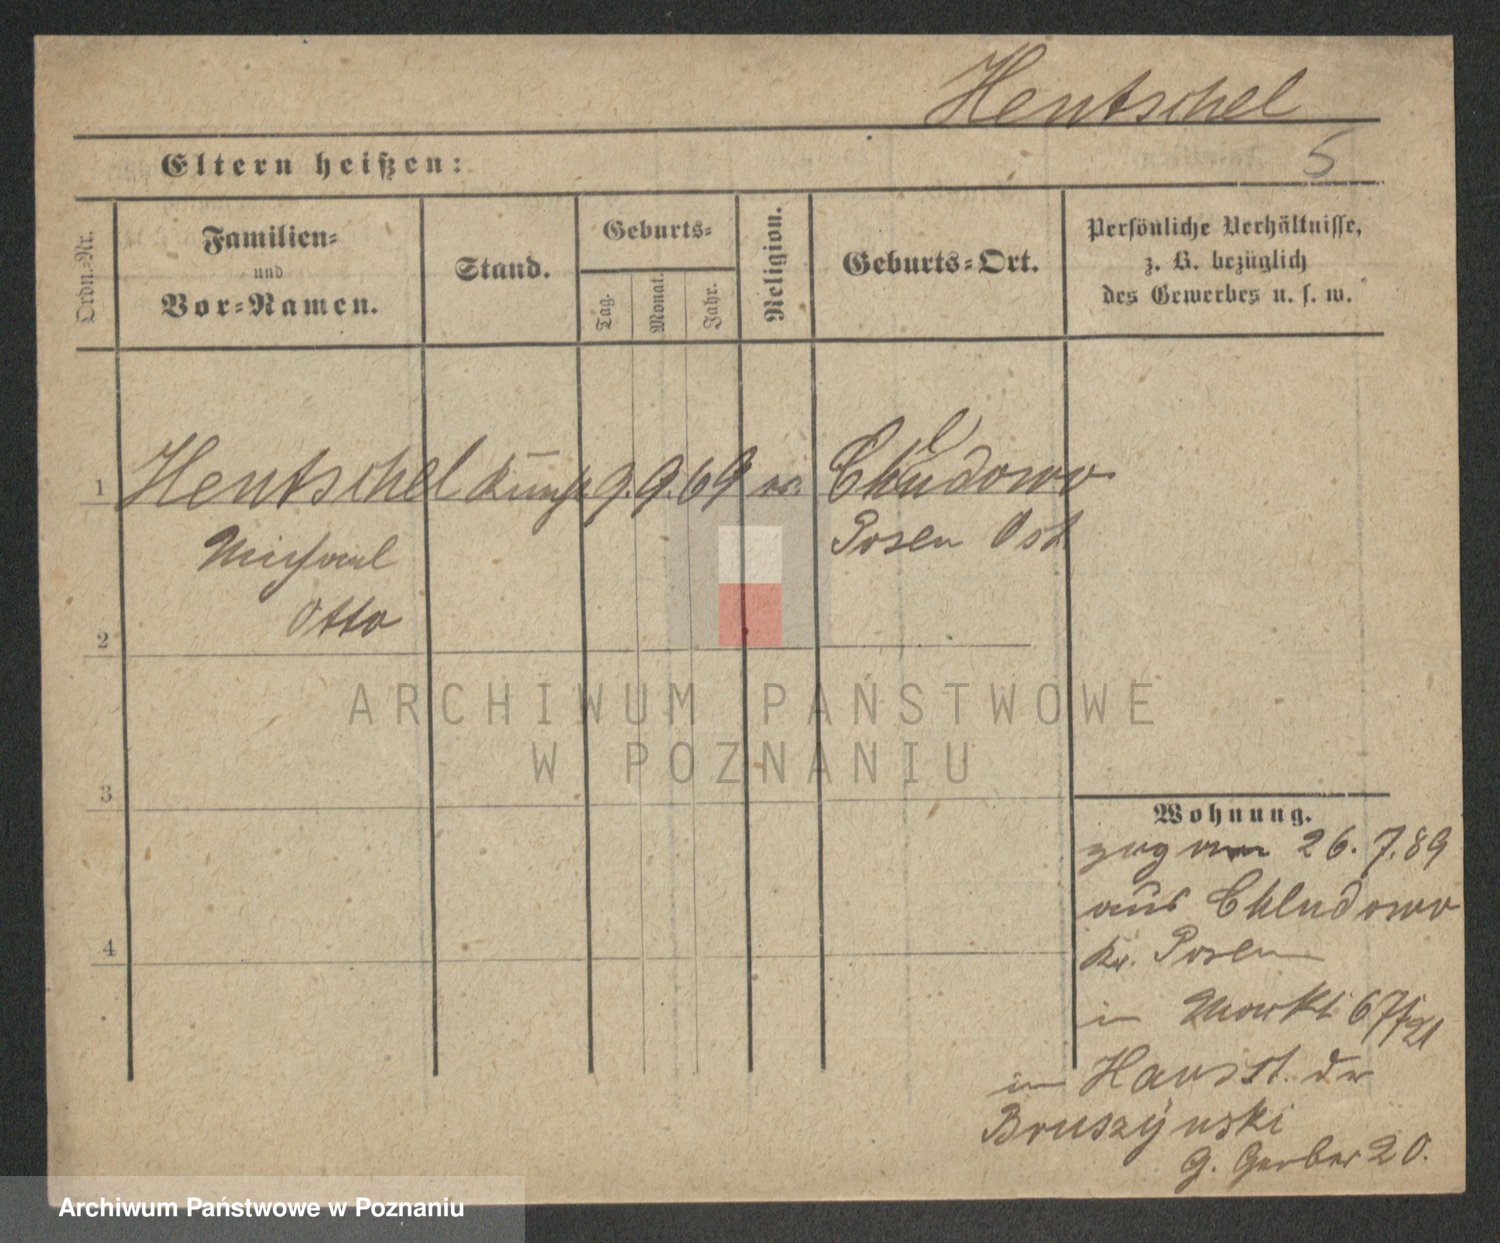 Hentschel
5
Eltern heißen:
Ordn.-Nr.
Familien-
und
Vor-Namen.
Stand.
Geburts-
Tag.
Monat.
Jahr.
Religion.
Geburts-Ort.
Persönliche Verhältnisse,
z. B. bezüglich
des Gewerbes u. s. w.
1 Hentschel 9. 9. 69 Chludowo
Michael Posen Ost
Otto
2
ARCHIWUM PAŃSTWOWE
W POZNANIU
3
Wohnung.
zug 26. 7. 89
aus Chludowo
4
Kr. Posen
in Markt 67/
in Hausst. der
Bruszynski
G. Gerber 20.
Archiwum Państwowe w Poznaniu